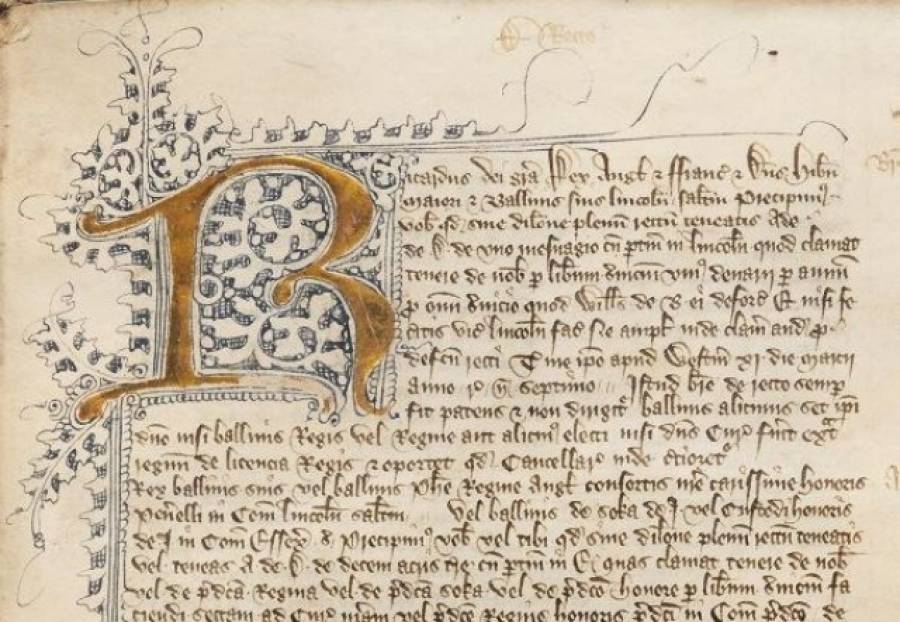 De Recto
Ricardus dei gra Rex Angl & ffranc & Dns Hibn
maiori & Ballivis suis lincoln saltm Precipim9
vob qd sine dilone plenum rectu teneatis Ade
de B. de uno mesuagio cu ptin in lincoln quod clamat
tenere de nob p libum suicium viii denarij p annu
p omi suicio quod Wills de S ei deforc Et nisi fe
citis vic lincoln fac Ne amplius inde clam aud p
defcu recti T me ipo apud Westm xi die marcij
anno r n septimo Istud bre de recto semp
sit patens & non dirigit ballivis alicuius set ipi
dno nisi ballivis Regis vel Regine aut alicui9 electi nisi dns Cur fuit ext
regnum de licencia Regis & oportet qd Cancellar inde ctioret
Rex ballivis suis vel ballivis Phe Regine Angl consortis nre carissime honoris
Peverelli in Com lincoln saltm Vel ballivis de soka de J vel Custodi honoris
de J in Com Essex &c Precipim9 vob vel tibi qd sine dilone plenu rectu teneatis
vel teneas A de B. de decem acris tre cu ptin in E quas clamat tenere de nob
vel de pdca Regina vel de pdca soka vel de pdco honore p libum suicm fa
ciendi sectam ad Cur nram vel pdce Regine honoris pdci in Com pdco de